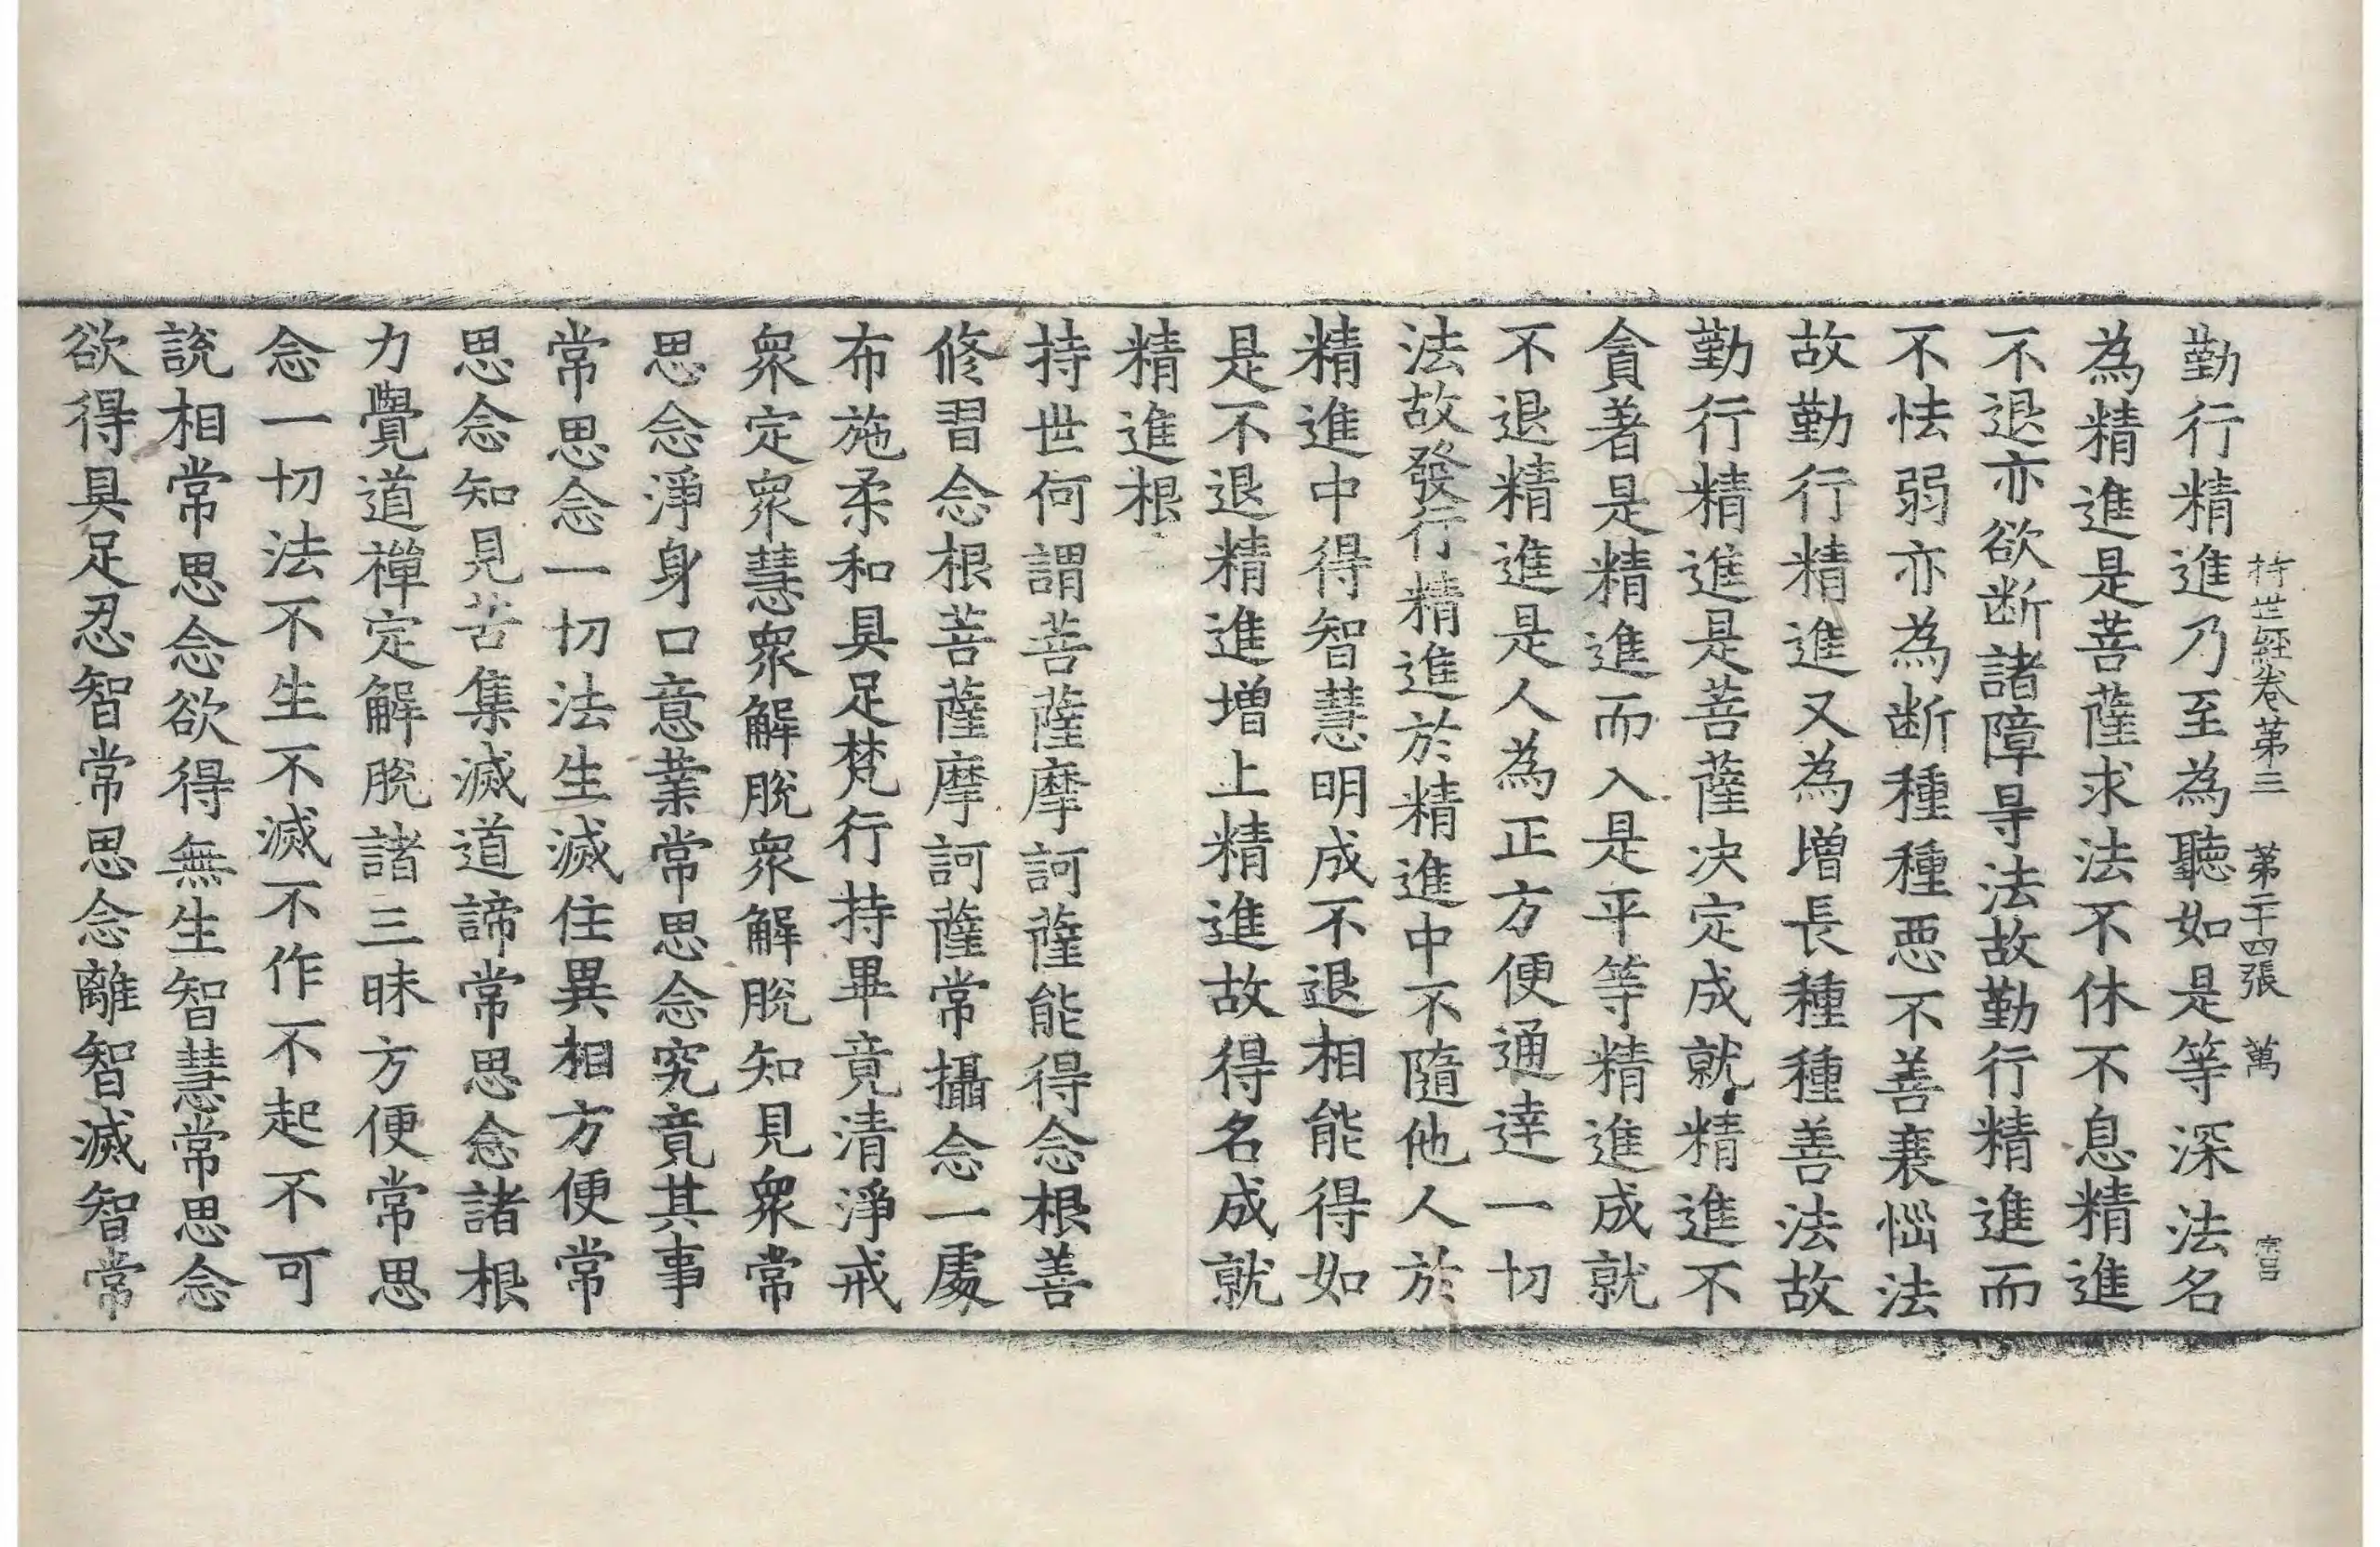 持世経卷第三 第二十四張 萬
勤行精進乃至為聽如是等深法名
為精進是菩薩求法不休不息精進
不退亦欲断諸障㝵法故勤行精進而
不怯弱亦為断種種惡不善衰惱法
故勤行精進又為增長種種善法故
勤行精進是菩薩决定成就精進不
貪著是精進而入是平等精進成就
不退精進是人為正方便通達一切
法故發行精進於精進中不隨他人於
精進中得智慧明成不退相能得如
是不退精進增上精進故得名成就
精進根
持世何謂菩薩摩訶薩能得念根善
修習念根菩薩摩訶薩常攝念一處
布施柔和具足梵行持畢竟清淨戒
眾定眾慧眾解脫眾解脫知見眾常
思念淨身口意業常思念究竟其事
常思念一切法生滅住異相方便常
思念知見苦集滅道諦常思念諸根
力覺道禪定解脫諸三昧方便常思
念一切法不生不滅不作不起不可
說相常思念欲得無生智慧常思念
欲得具足忍智常思念離智滅智常